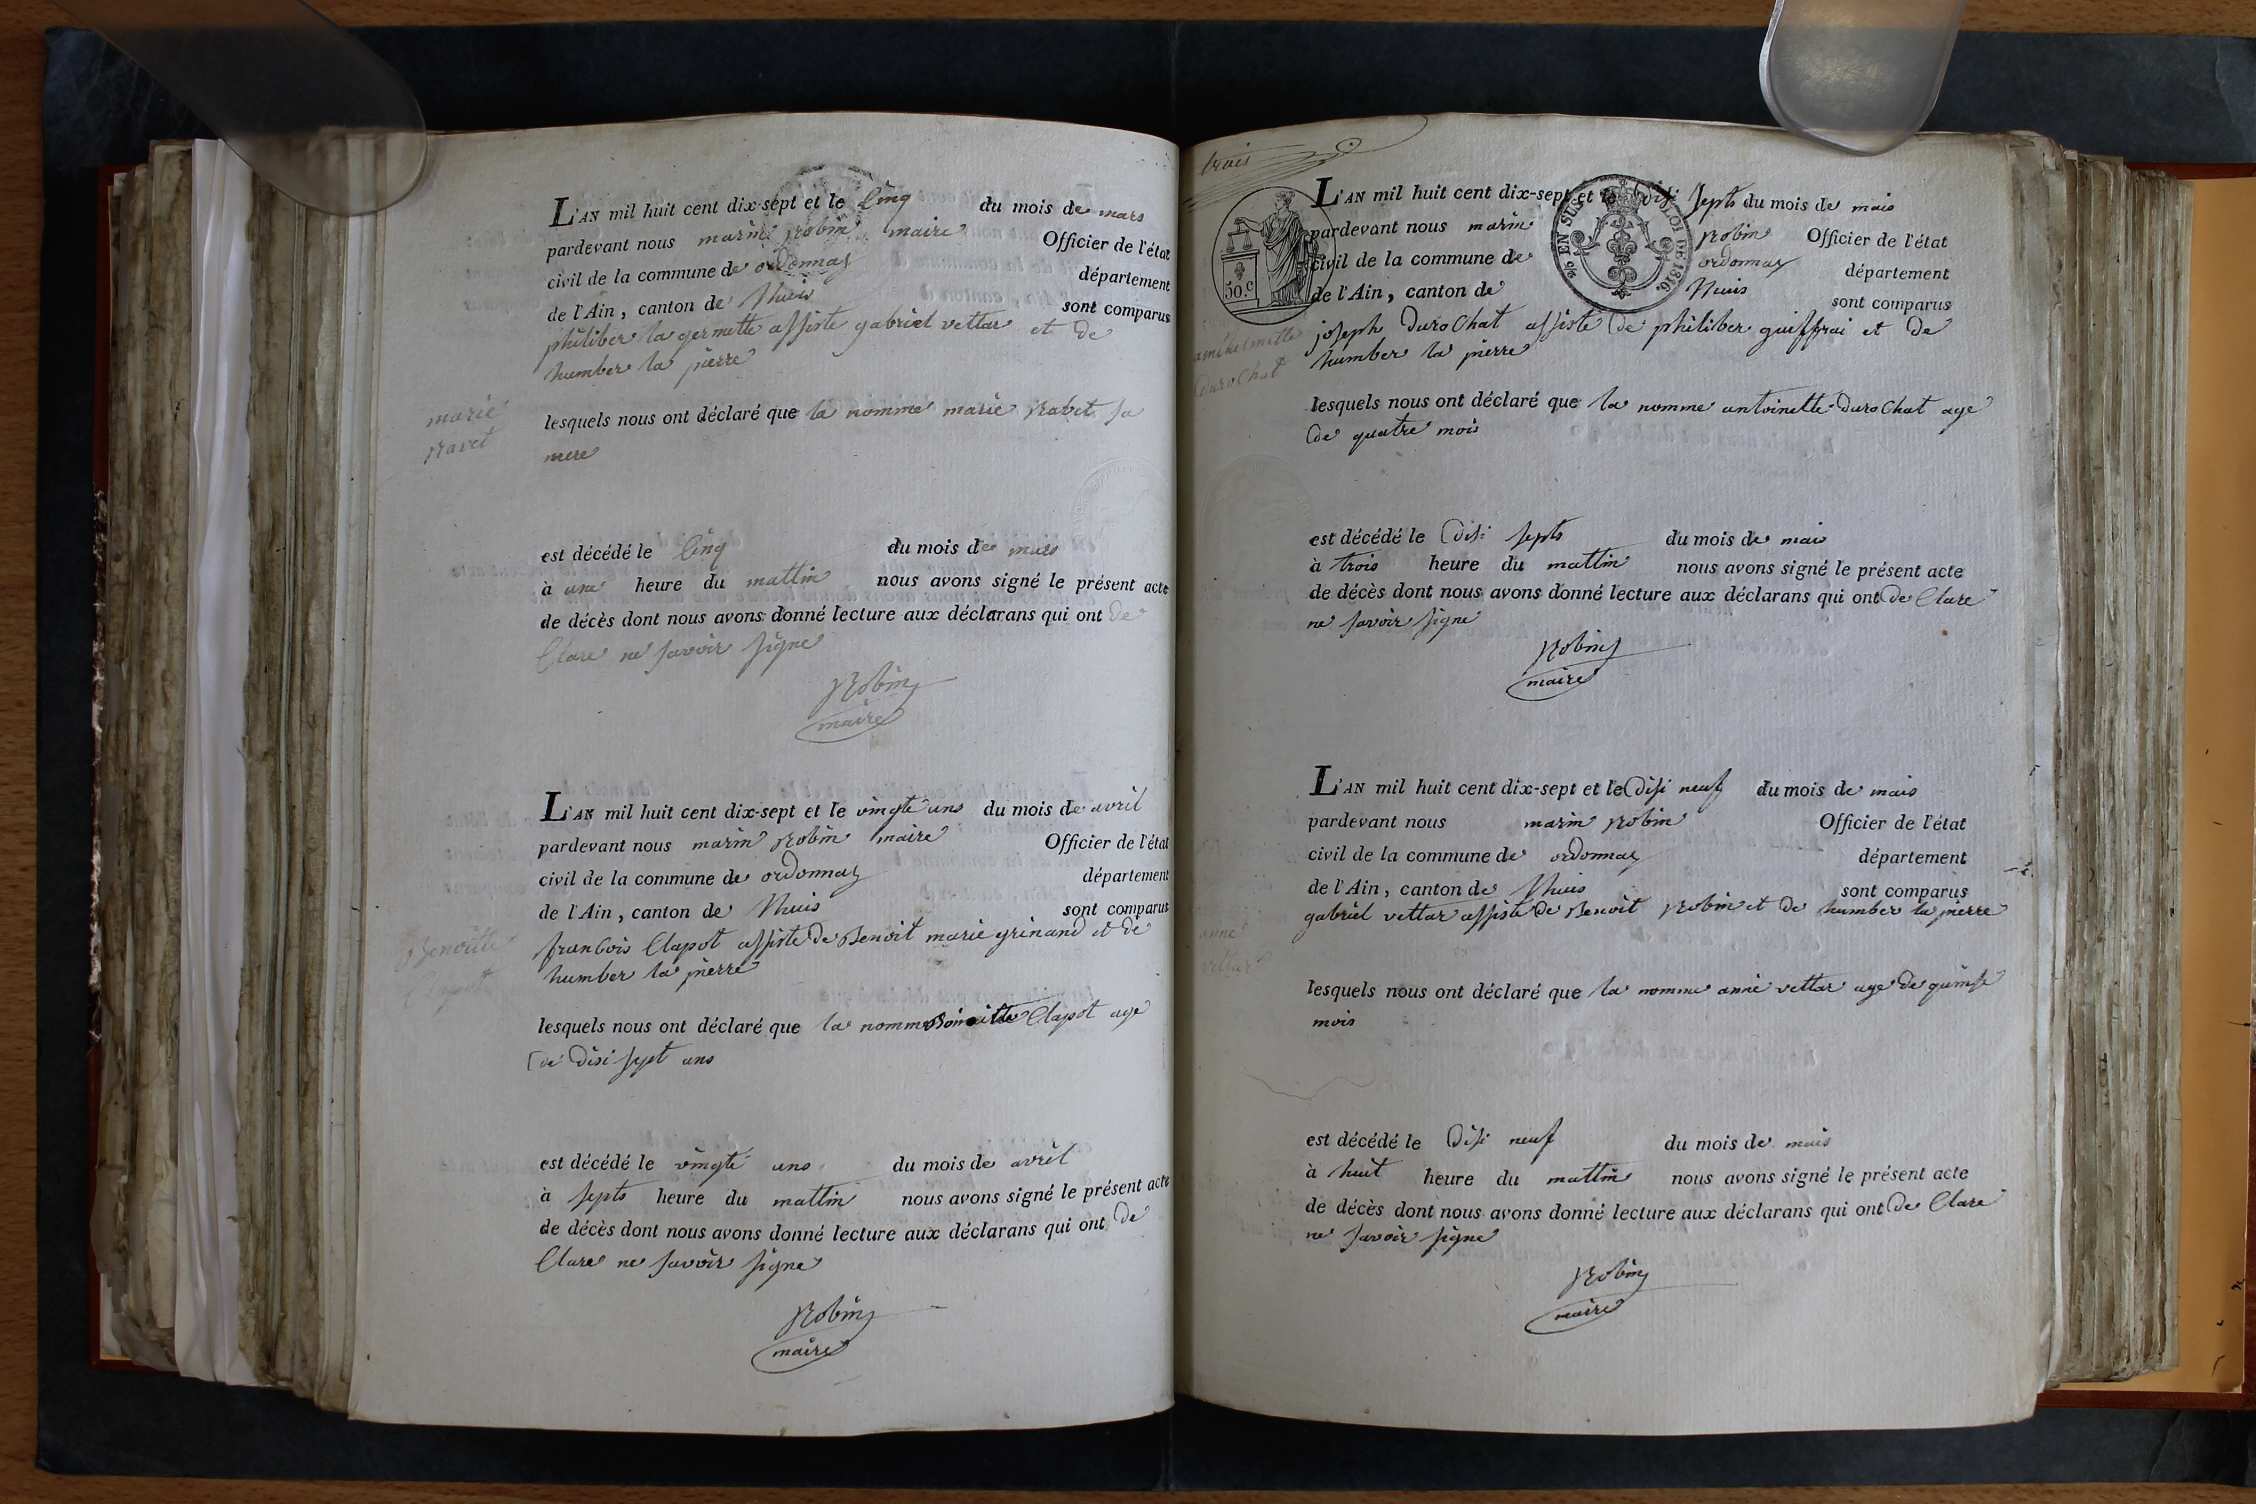 L'AN mil huit cent dix-sept et le cinq du mois de mars
pardevant nous marin robin maire Officier de l'état
civil de la commune de ordonnaz département
de l'Ain, canton de lhuis sont comparus
philiber la germette assiste gabriel vettar et de
humber la pierre
marie
ravet
lesquels nous ont déclaré que la nomme marie ravet sa
mere
est décédé le cinq du mois de mars
à une heure du mattin nous avons signé le présent acte
de décès dont nous avons donné lecture aux déclarans qui ont de
Clare ne savoir signe
Robin
maire
L'AN mil huit cent dix-sept et le vingte uns du mois de avril
pardevant nous marin robin maire Officier de l'état
civil de la commune de ordonnaz département
de l'Ain, canton de lhuis sont comparus
francois Clapot assiste de Benoit marie grinand et de
humber la pierre
Benoitte
Clapot
lesquels nous ont déclaré que la nomme Benoitte Clapot age
de disi sept ans
est décédé le vingte uns du mois de avril
à septs heure du mattin nous avons signé le présent acte
de décès dont nous avons donné lecture aux déclarans qui ont de
Clare ne savoir signe
Robin
maire
trois
L'AN mil huit cent dix-sept et le disi septs du mois de mais
pardevant nous marin robin Officier de l'état
civil de la commune de ordonnaz département
de l'Ain, canton de lhuis sont comparus
50.c
EN SUS LOI DE 1816.
joseph durochat assiste de philiber guiffrai et de
humber la pierre
durochat
lesquels nous ont déclaré que la nomme antoinette durochat age
de quatre mois
est décédé le disi septs du mois de mais
à trois heure du mattin nous avons signé le présent acte
de décès dont nous avons donné lecture aux déclarans qui ont de Clare
ne savoir signe
Robin
maire
L'AN mil huit cent dix-sept et le disi neuf du mois de mais
pardevant nous marin robin Officier de l'état
civil de la commune de ordonnaz département
de l'Ain, canton de lhuis sont comparus
gabriel vettar assiste de Benoit robin et de humber la pierre
anne
vettar
lesquels nous ont déclaré que la nomme anne vettar age de quinse
mois
est décédé le disi neuf du mois de mais
à huit heure du mattin nous avons signé le présent acte
de décès dont nous avons donné lecture aux déclarans qui ont de Clare
ne savoir signe
Robin
maire